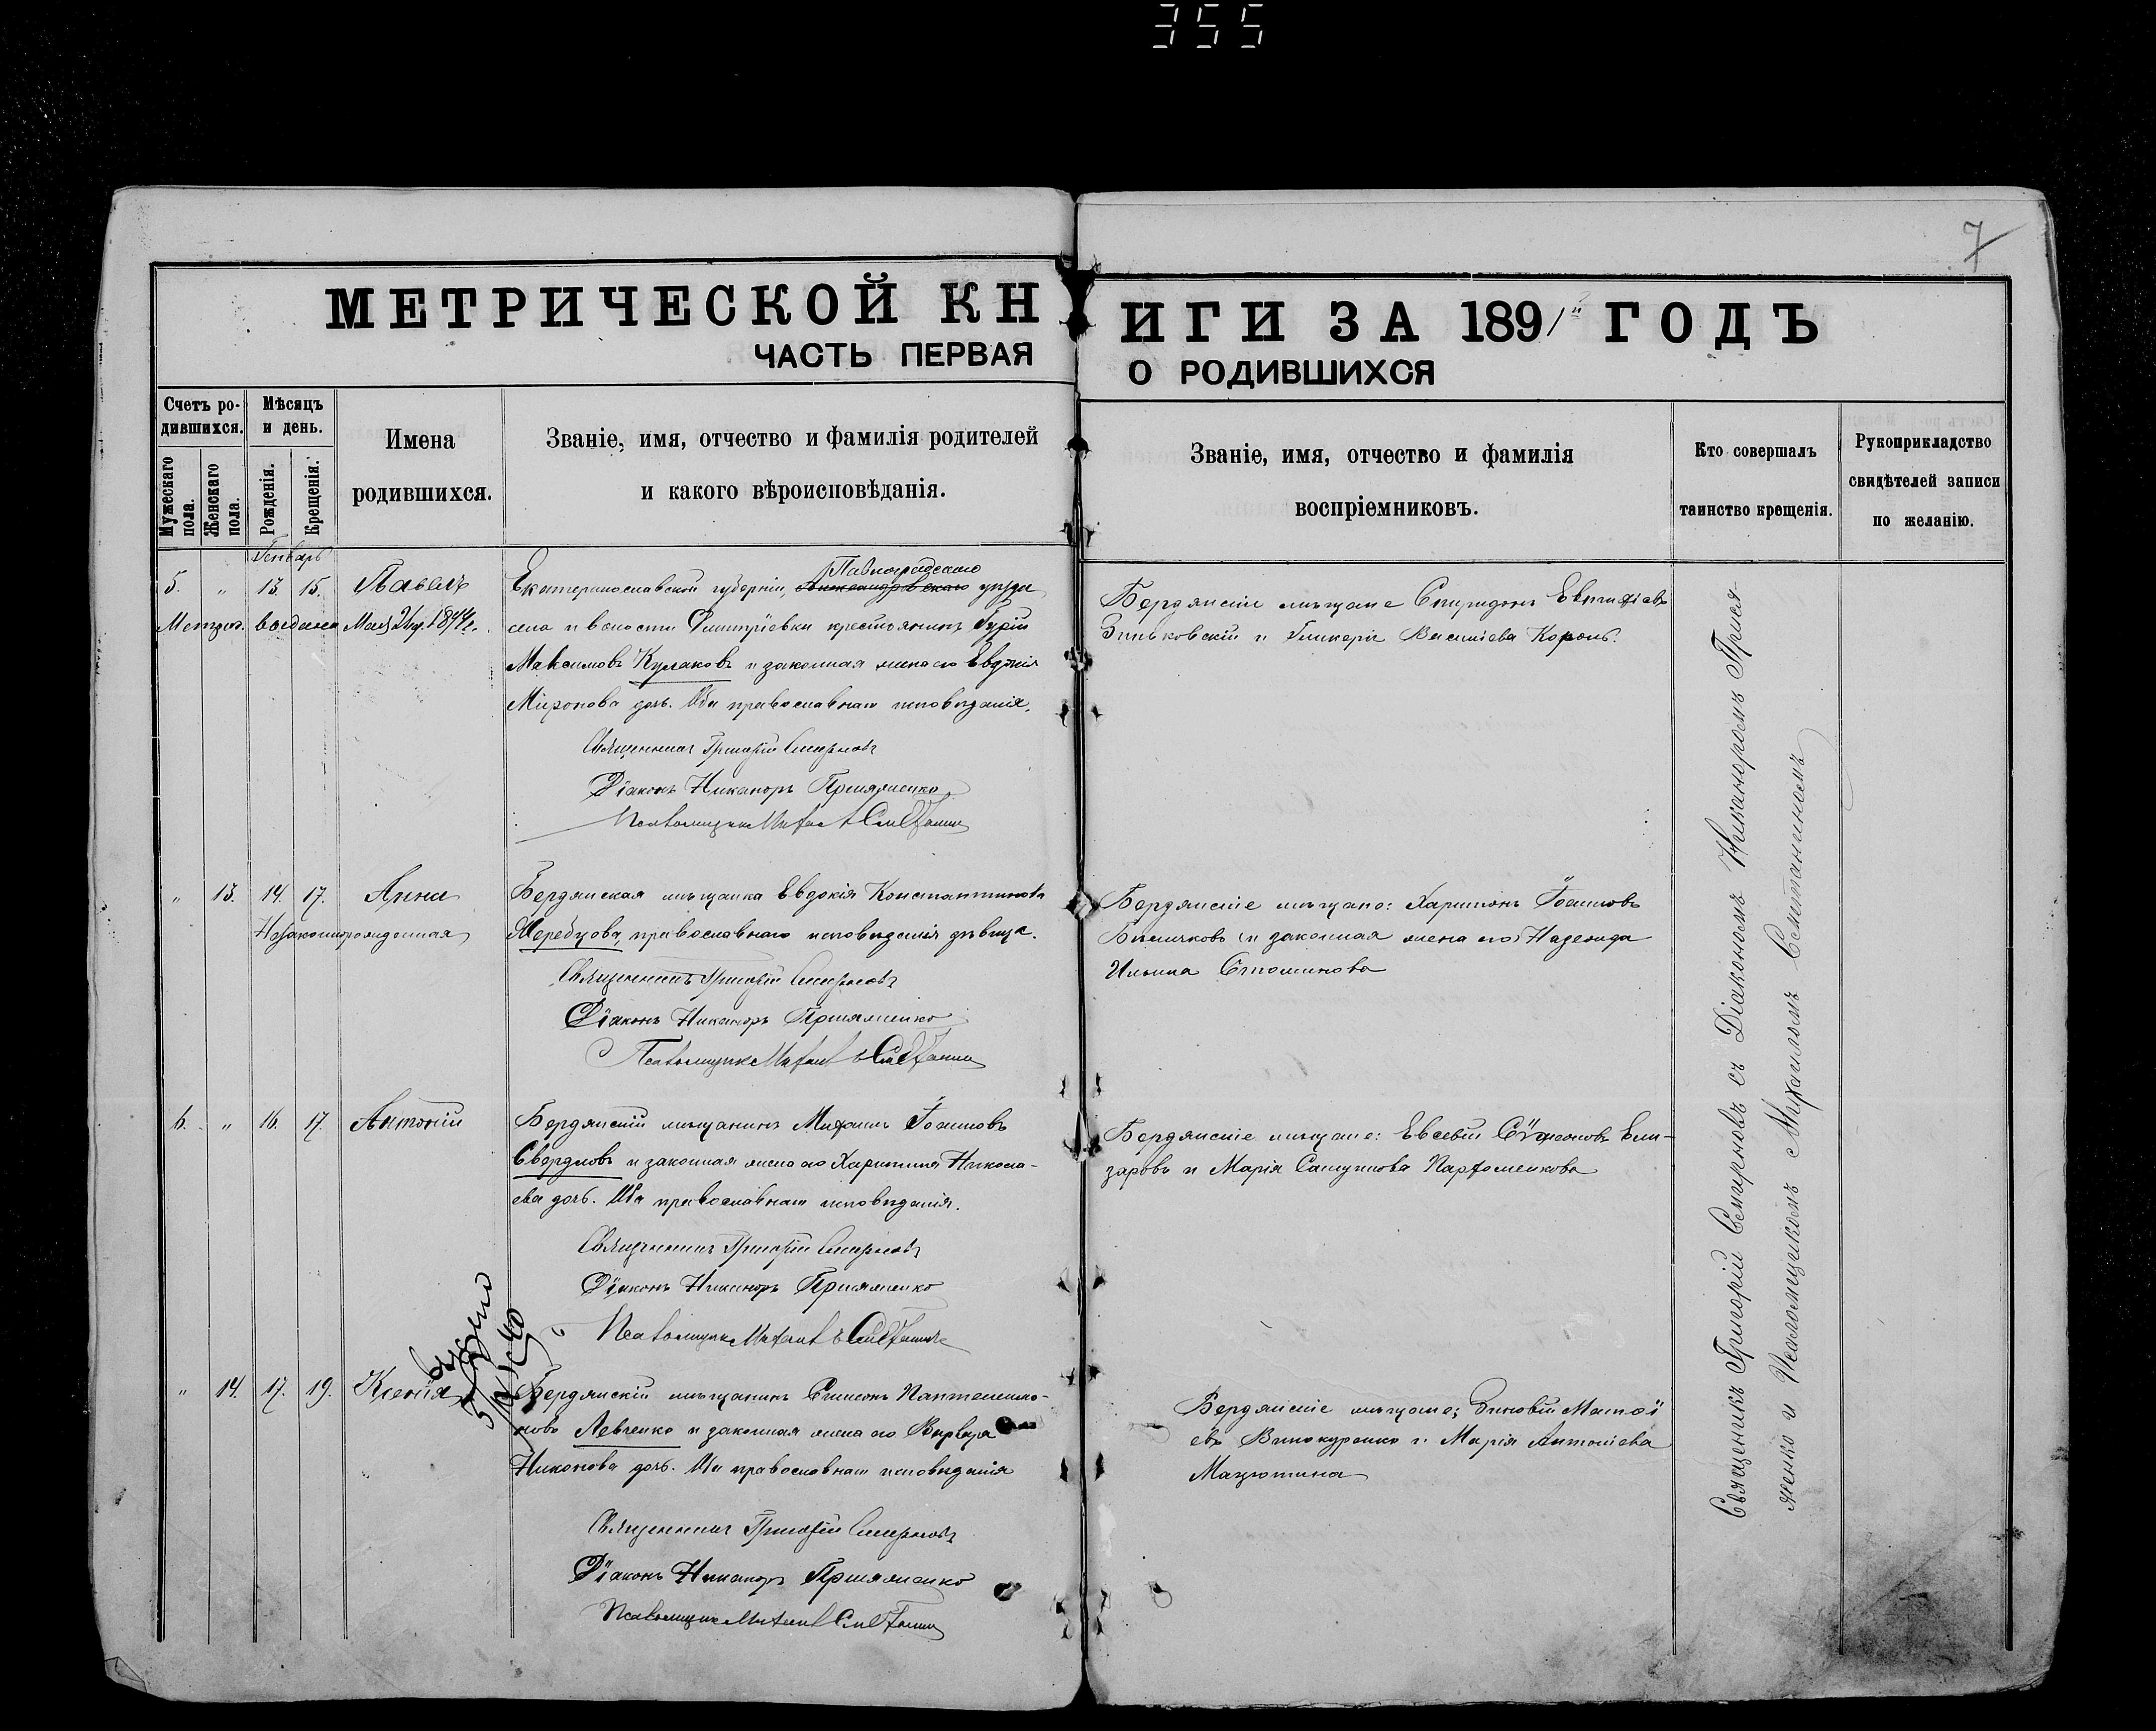 355
7
МЕТРИЧЕСКОЙ КНИГИ ЗА 1891й ГОДЪ
ЧАСТЬ ПЕРВАЯ О РОДИВШИХСЯ
Счетъ родившихся.
Мужескаго пола.
Женскаго пола.
Мѣсяцъ и день.
Рожденія.
Крещенія.
Имена родившихся.
Званіе, имя, отчество и фамилія родителей
и какого вѣроисповѣданія.
Званіе, имя, отчество и фамилія
воспріемниковъ.
Кто совершалъ
таинство крещенія.
Рукоприкладство
свидѣтелей записи
по желанію.
Генварь
5. " 13. 15. Павелъ
Метрич. выдана Мая
Павлоградскаго
Екатеринославской губерніи, Александровскаго уѣзда
села и волости Дмитріевки крестьянинъ Гурій
Максимовъ Кулаковъ и законная жена его Евдокія
Миронова дочь. Оба православнаго исповѣданія.
Священникъ Григорій Смирновъ
Діаконъ Никаноръ Прияженко
Псаломщикъ Михаилъ
Бердянскіе мѣщане Спиридонъ
Зиньковскій и Гликерія Васильева Король.
" 13. 14. 17. Анна
Незаконнорожденная
Бердянская мѣщанка Евдокія Константинова
Жеребцова, православнаго исповѣданія дѣвица.
Священникъ Григорій Смирновъ
Діаконъ Никаноръ Прияженко
Псаломщикъ Михаилъ
Бердянскіе мѣщане: Харитонъ Іоанновъ
и законная жена его Надежда
Ильина
6. " 16. 17. Антоній
Бердянскій мѣщанинъ Михаилъ Іоанновъ
Свердловъ и законная жена его Харитина Никола-
ева дочь. Оба православнаго исповѣданія.
Священникъ Григорій Смирновъ
Діаконъ Никаноръ Прияженко
Псаломщикъ Михаилъ
Бердянскіе мѣщане: Евсевій Сѵмеоновъ Ели-
заровъ и Марія Парфоменкова
" 14. 17. 19. Ксенія
Бердянскій мѣщанинъ Симеонъ Пантелеимо-
новъ Левченко и законная жена его Варвара
Никонова дочь. Оба православнаго исповѣданія
Священникъ Григорій Смирновъ
Діаконъ Никаноръ Прияженко
Псаломщикъ Михаилъ
Бердянскіе мѣщане: Зиновій Матѳі
евъ Винокуренко и Марія Антоніева
Мацютина
Священникъ Григорій Смирновъ съ Діакономъ Никаноромъ Прия
женко и Псаломщикомъ Михаиломъ